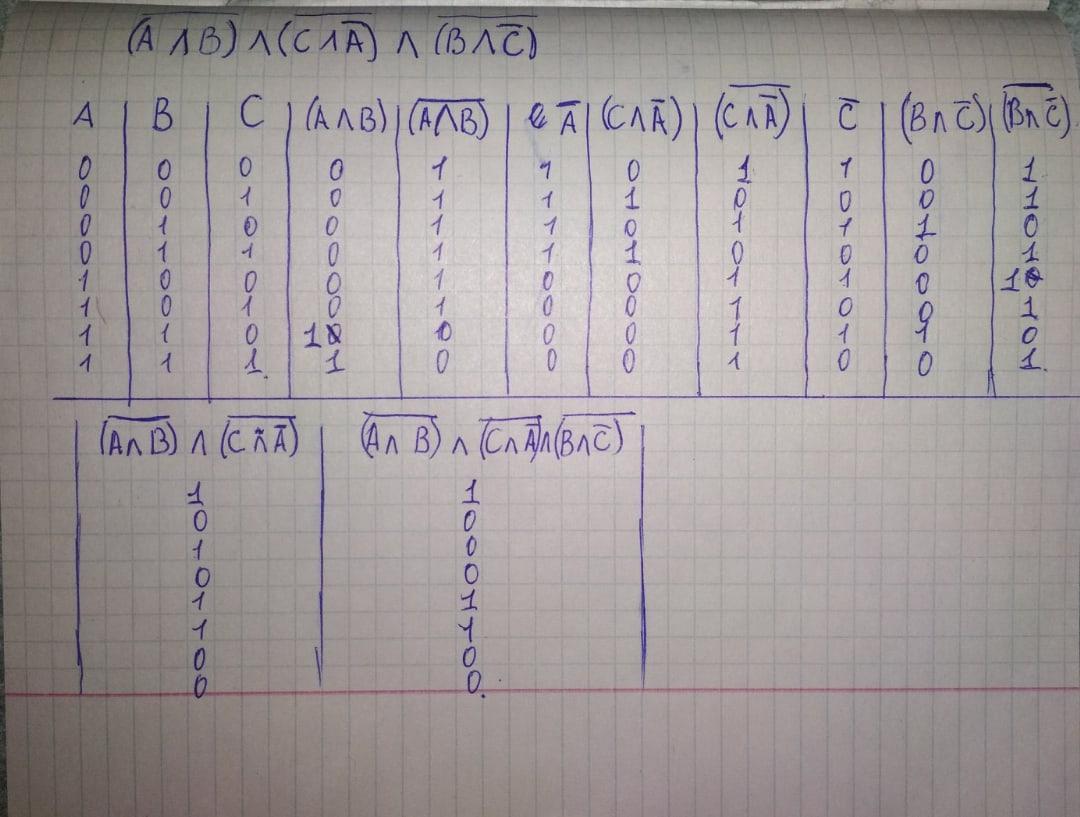 (A̅ ̅∧̅ ̅B̅) ∧ (C̅ ̅∧̅ ̅A̅̅) ∧ (B̅ ̅∧̅ ̅C̅̅)
A | B | C | (A∧B) | (A̅∧̅B̅) | A̅ | (C∧A̅) | (C̅∧̅A̅̅) | C̅ | (B∧C̅) | (B̅∧̅C̅̅)
0 0 0 0 1 1 0 1 1 0 1
0 0 1 0 1 1 1 0 0 0 1
0 1 0 0 1 1 0 1 1 1 0
0 1 1 0 1 1 1 0 0 0 1
1 0 0 0 1 0 0 1 1 0 1
1 0 1 0 1 0 0 1 0 0 1
1 1 0 1 0 0 0 1 1 1 0
1 1 1 1 0 0 0 1 0 0 1
(A̅∧̅B̅) ∧ (C̅∧̅A̅̅) | (A̅∧̅B̅) ∧ (C̅∧̅A̅̅) ∧ (B̅∧̅C̅̅)
1 1
0 0
1 0
0 0
1 1
1 1
0 0
0 0